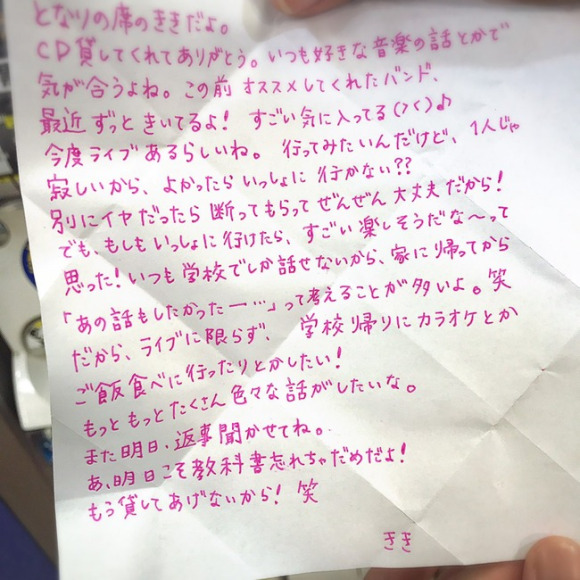 となりの席のききだよ。
CD貸してくれてありがとう。いつも好きな音楽の話とかで
気が合うよね。この前オススメしてくれたバンド、
最近ずっときいてるよ！すごい気に入ってる(>く)♪
今度ライブあるらしいね。行ってみたいんだけど、1人じゃ
寂しいから、よかったらいっしょに行かない??
別にイヤだったら断ってもらってぜんぜん大丈夫だから！
でも、もしもいっしょに行けたら、すごい楽しそうだな〜って
思った！いつも学校でしか話せないから、家に帰ってから
「あの話もしたかったー…」って考えることが多いよ。笑
だから、ライブに限らず、学校帰りにカラオケとか
ご飯食べに行ったりとかしたい！
もっともっとたくさん色々な話がしたいな。
また明日、返事聞かせてね。
あ、明日こそ教科書忘れちゃだめだよ！
もう貸してあげないから！笑
きき